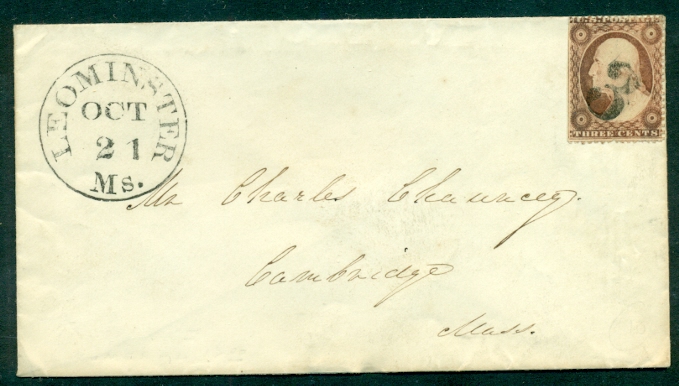 LEOMINSTER
OCT
21
Ms.
U.S. POSTAGE
THREE CENTS
3
Mr Charles Chauncey.
Cambridge
Mass.